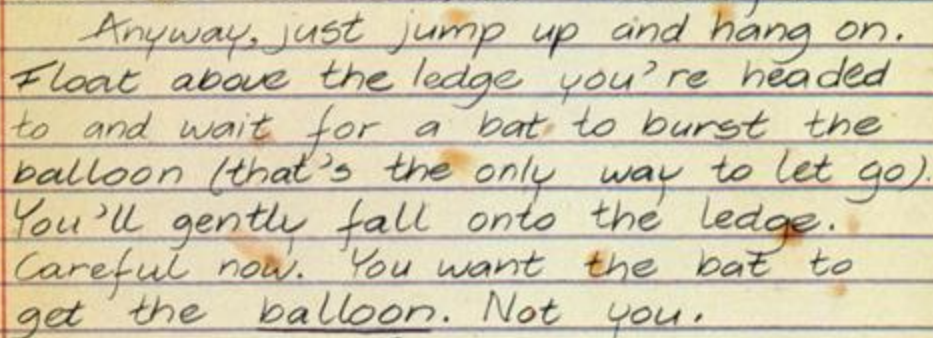 Anyway, just jump up and hang on.
Float above the ledge you're headed
to and wait for a bat to burst the
balloon (that's the only way to let go).
You'll gently fall onto the ledge.
Careful now. You want the bat to
get the balloon. Not you.